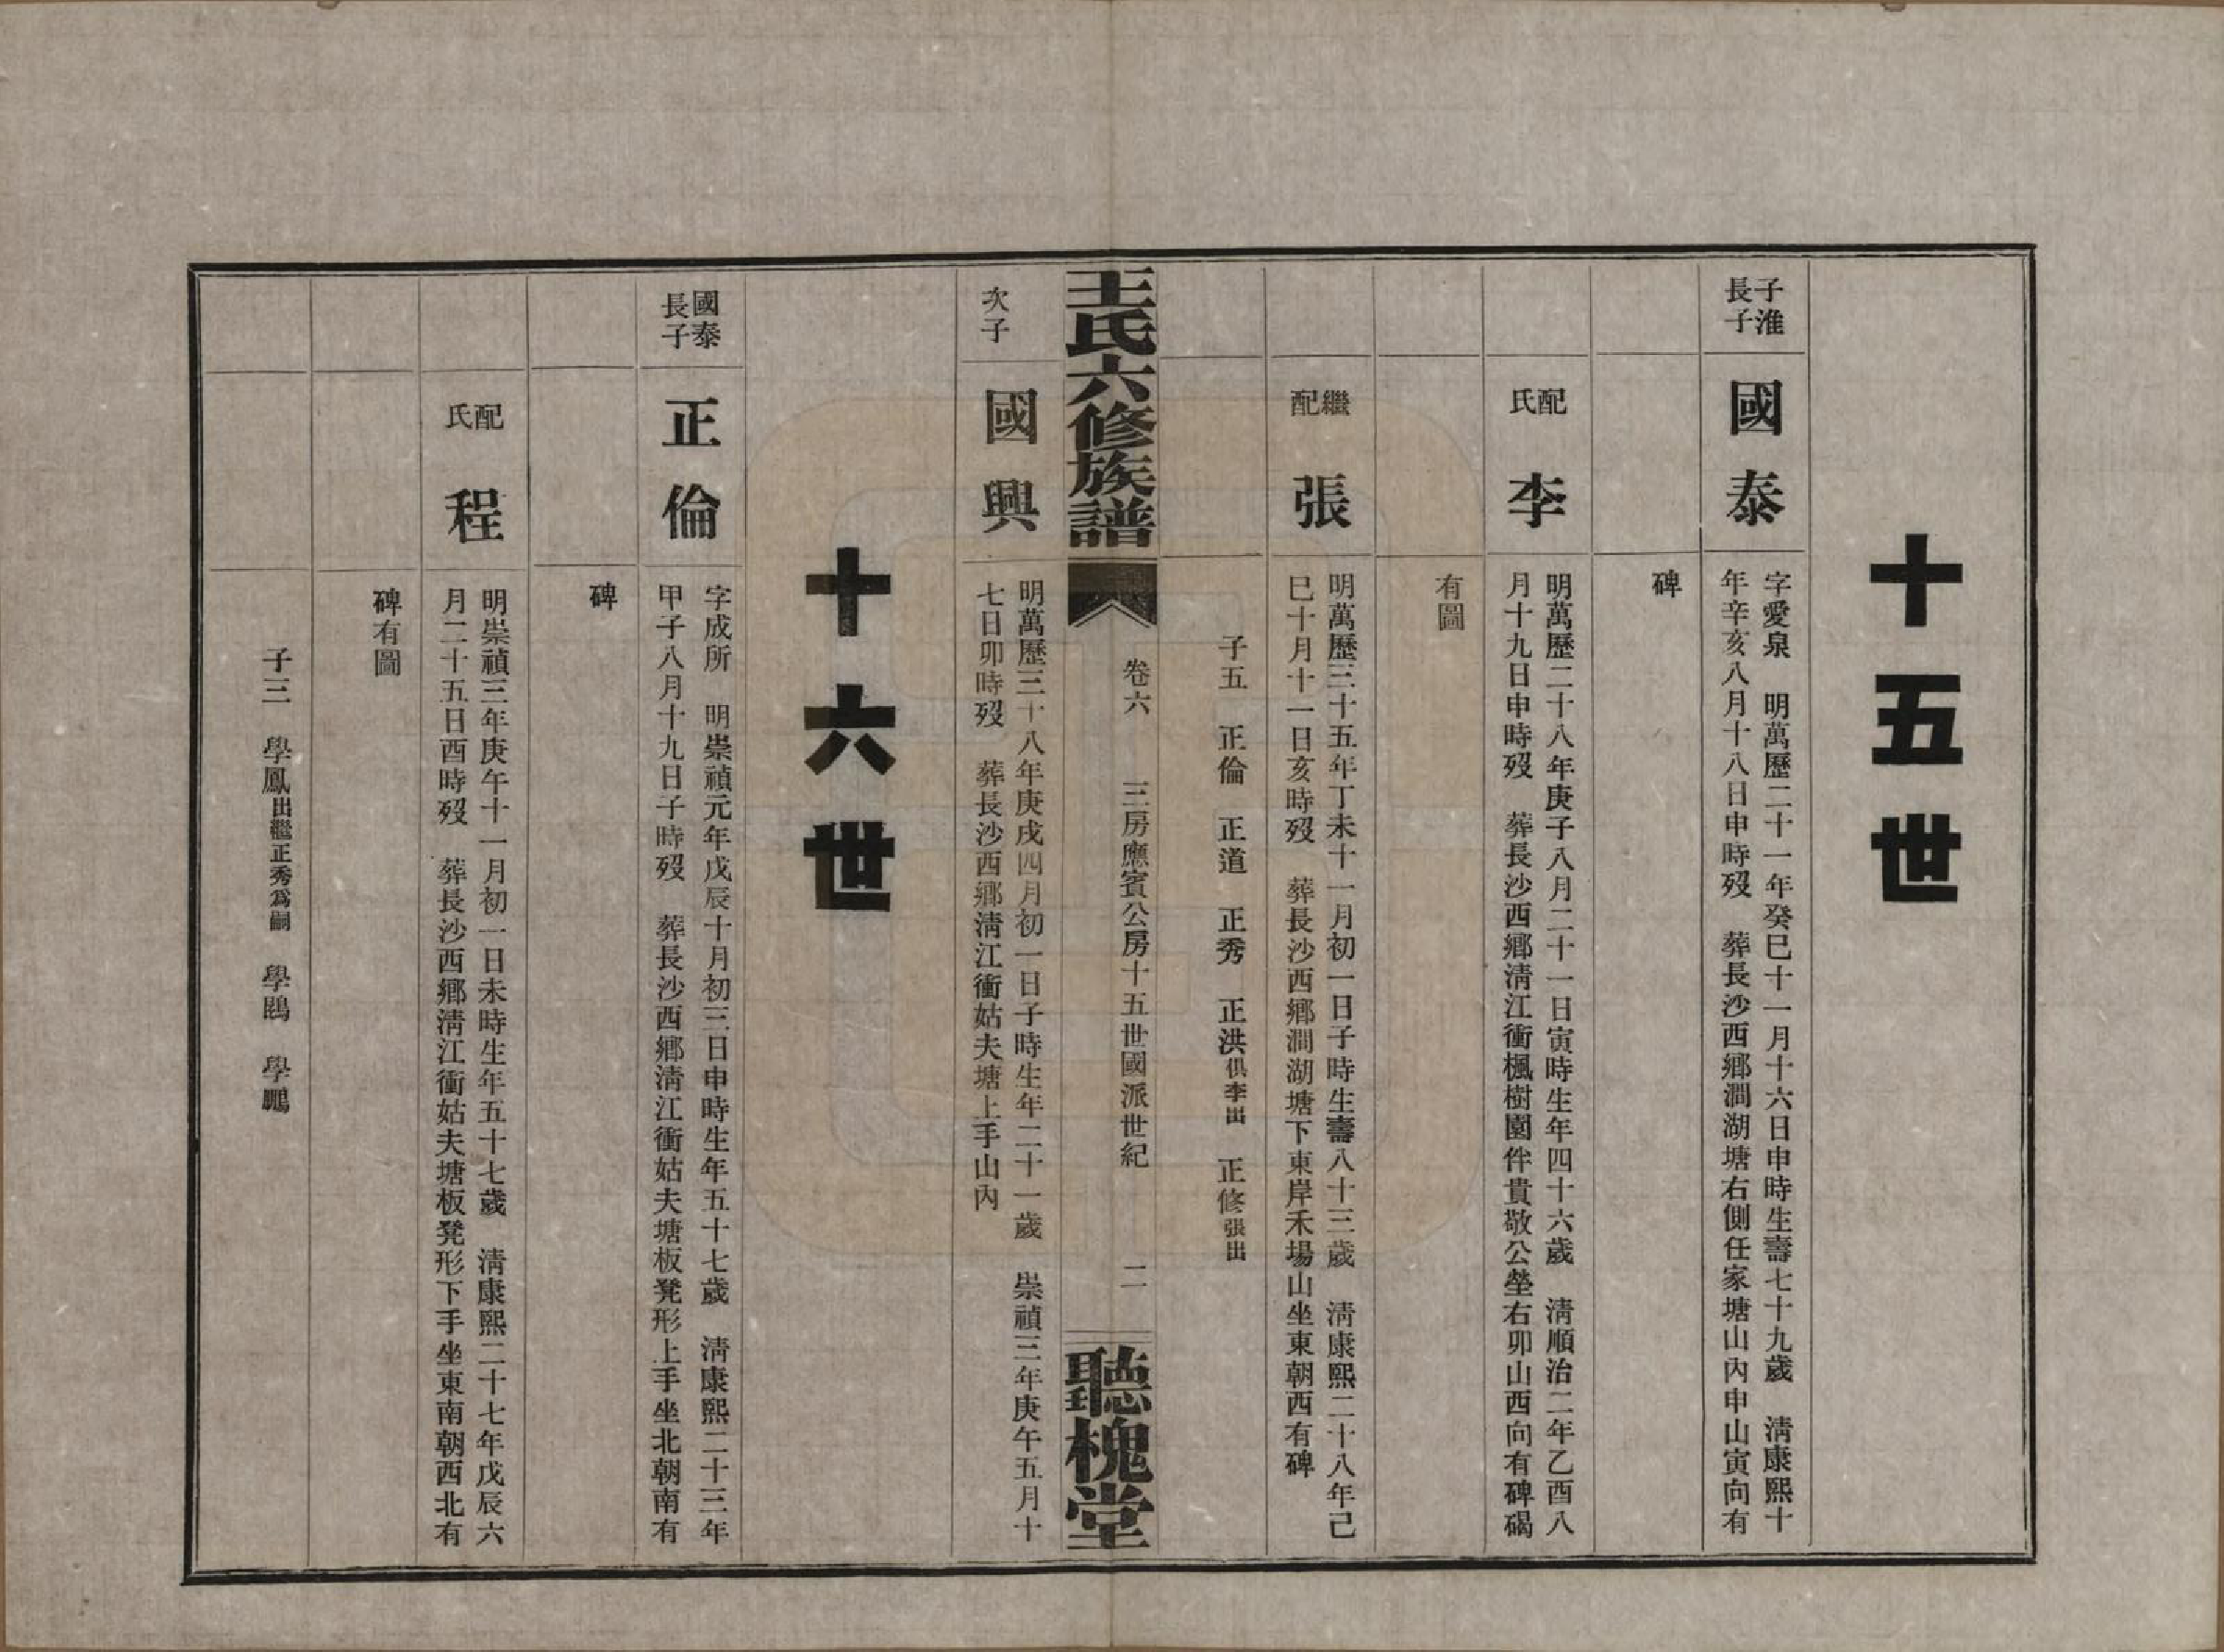 十五世
子淮
長子
國泰
字愛泉　明萬歷二十一年癸巳十一月十六日申時生壽七十九歲　淸康熙十
年辛亥八月十八日申時歿　葬長沙西鄉澗湖塘右側任家塘山內申山寅向有
碑
配
氏
李
明萬歷二十八年庚子八月二十一日寅時生年四十六歲　淸順治二年乙酉八
月十九日申時歿　葬長沙西鄉淸江衝楓樹園伴貴敬公塋右卯山西向有碑碣
有圖
繼
配
張
明萬歷三十五年丁未十一月初一日子時生壽八十三歲　淸康熙二十八年己
巳十月十一日亥時歿　葬長沙西鄉澗湖塘下東岸禾場山坐東朝西有碑
子五　正倫　正道　正秀　正洪俱李出　正修張出
王氏六修族譜
卷六　三房應賓公房十五世國派世紀　二
聽槐堂
次子
國興
明萬歷三十八年庚戌四月初一日子時生年二十一歲　崇禎三年庚午五月十
七日卯時歿　葬長沙西鄉淸江衝姑夫塘上手山內
十六世
國泰
長子
正倫
字成所　明崇禎元年戊辰十月初三日申時生年五十七歲　淸康熙二十三年
甲子八月十九日子時歿　葬長沙西鄉淸江衝姑夫塘板凳形上手坐北朝南有
碑
配
氏
程
明崇禎三年庚午十一月初一日未時生年五十七歲　淸康熙二十七年戊辰六
月二十五日酉時歿　葬長沙西鄉淸江衝姑夫塘板凳形下手坐東南朝西北有
碑有圖
子三　學鳳出繼正秀爲嗣　學鵾　學鵬